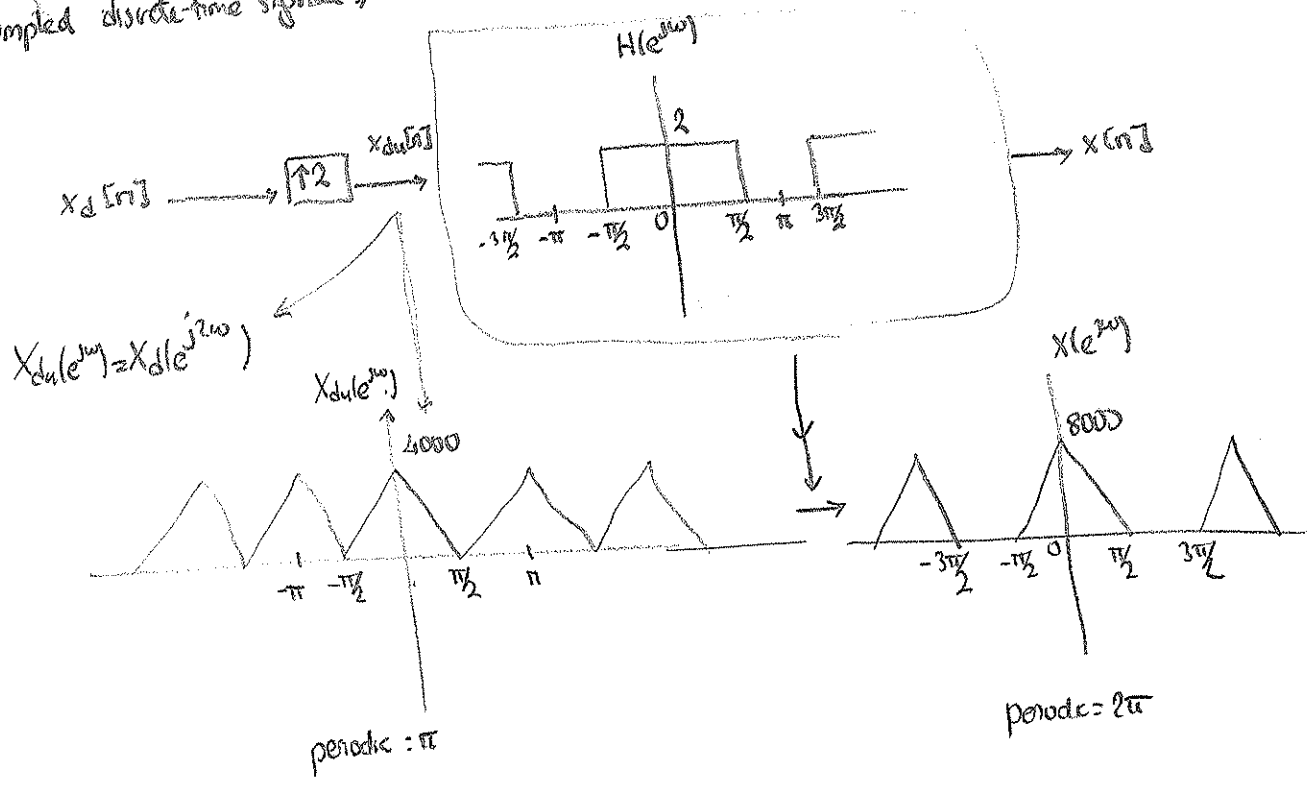 discrete-time
H(e^jω)
2
x_d[n] ↑2 x_du[n] x[n]
-3π/2 -π -π/2 0 π/2 π 3π/2
X_du(e^jω)=X_d(e^j2ω)
X_du(e^jω)
4000
-π -π/2 π/2 π
periodic : π
X(e^jω)
8000
-3π/2 -π/2 0 π/2 3π/2
periodic = 2π